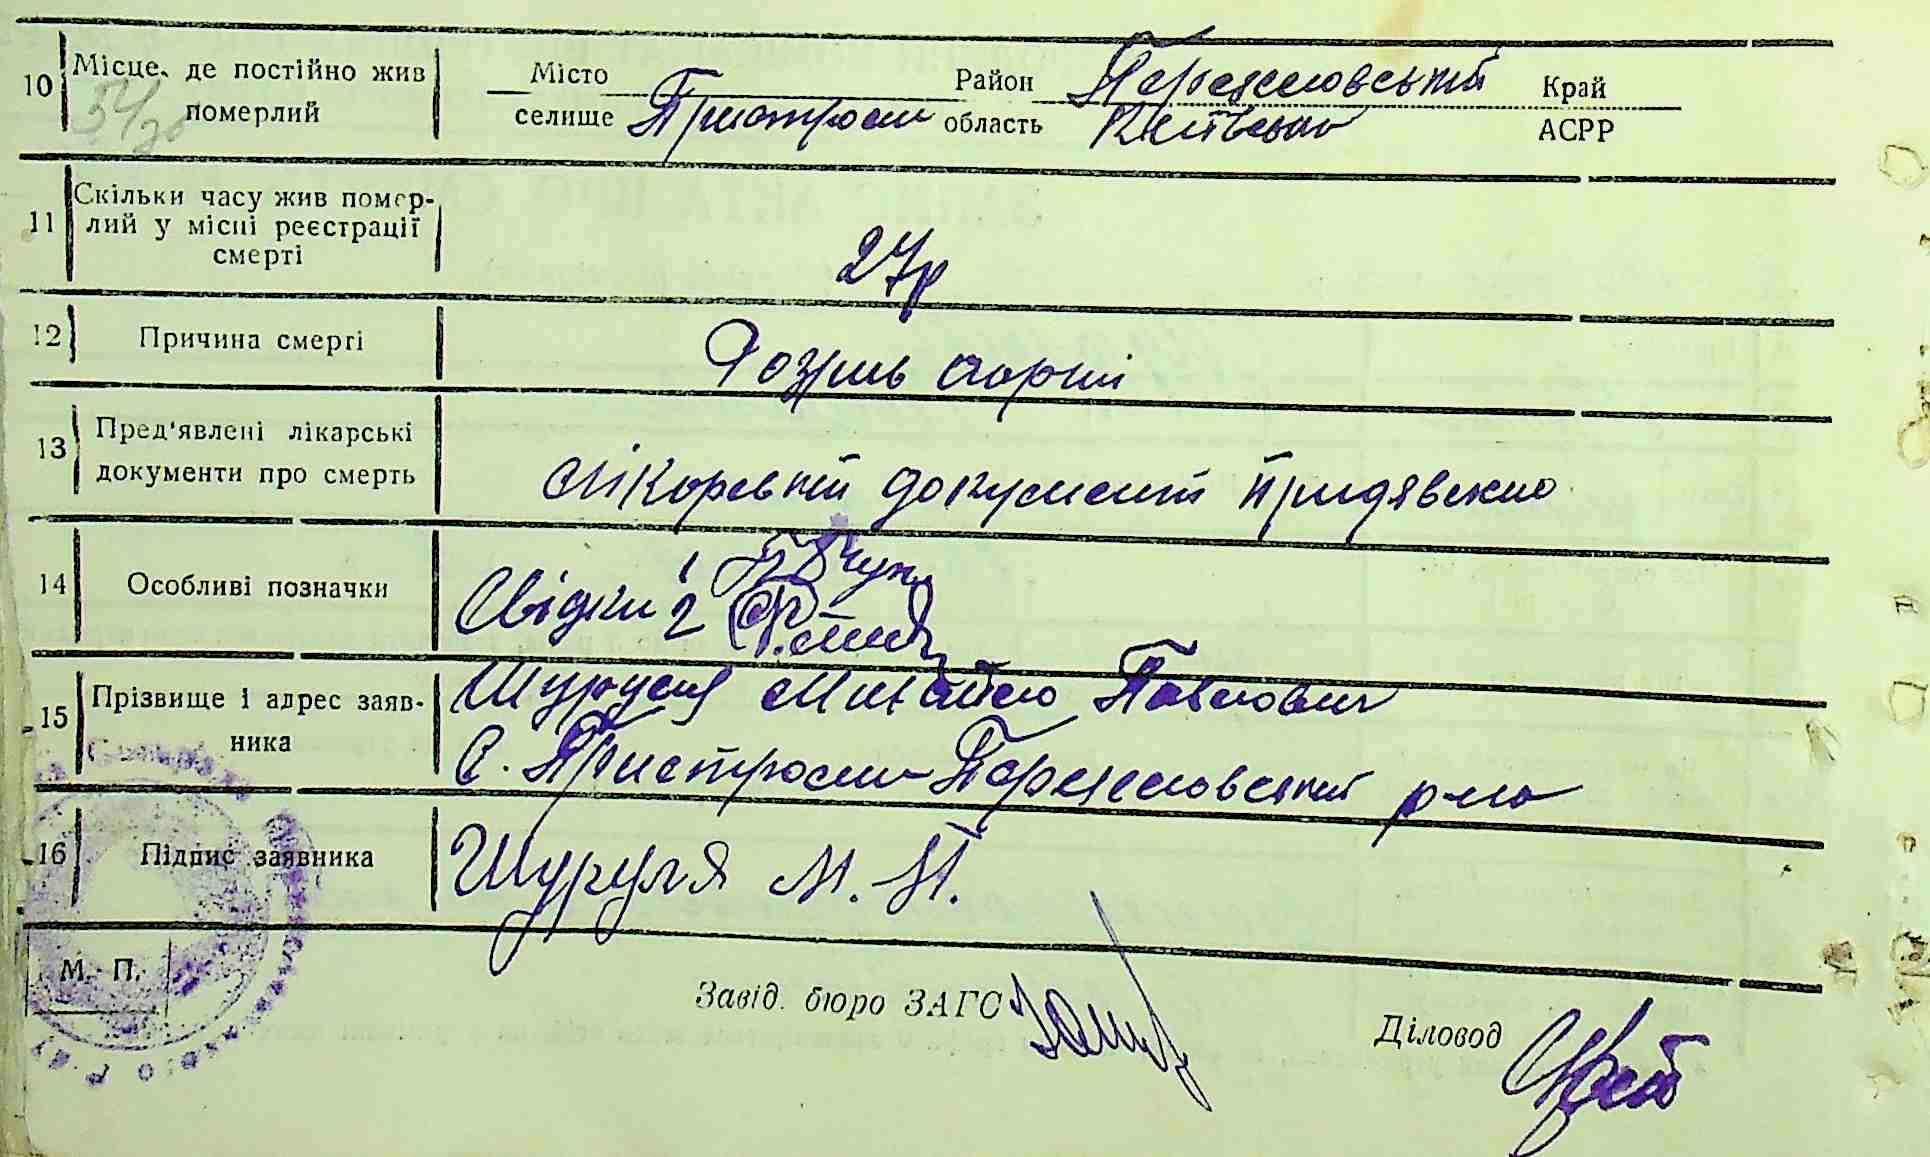 10 Місце, де постійно жив померлий
54/30
Місто Район Переяславський Край
селище Пристроми область Київська АСРР
11 Скільки часу жив помер-
лий у місці реєстрації
смерті
27р
12 Причина смерті
Розрив аорти
13 Пред'явлені лікарські
документи про смерть
Лікорський документ придявлено
14 Особливі позначки
Свідки 1
2
15 Прізвище і адрес заяв-
ника
Шуруля Михайло Павлович
с. Пристроми Переяславський р-но
16 Підпис заявника
Шуруля М. П.
М. П.
Завід. бюро ЗАГС
Діловод